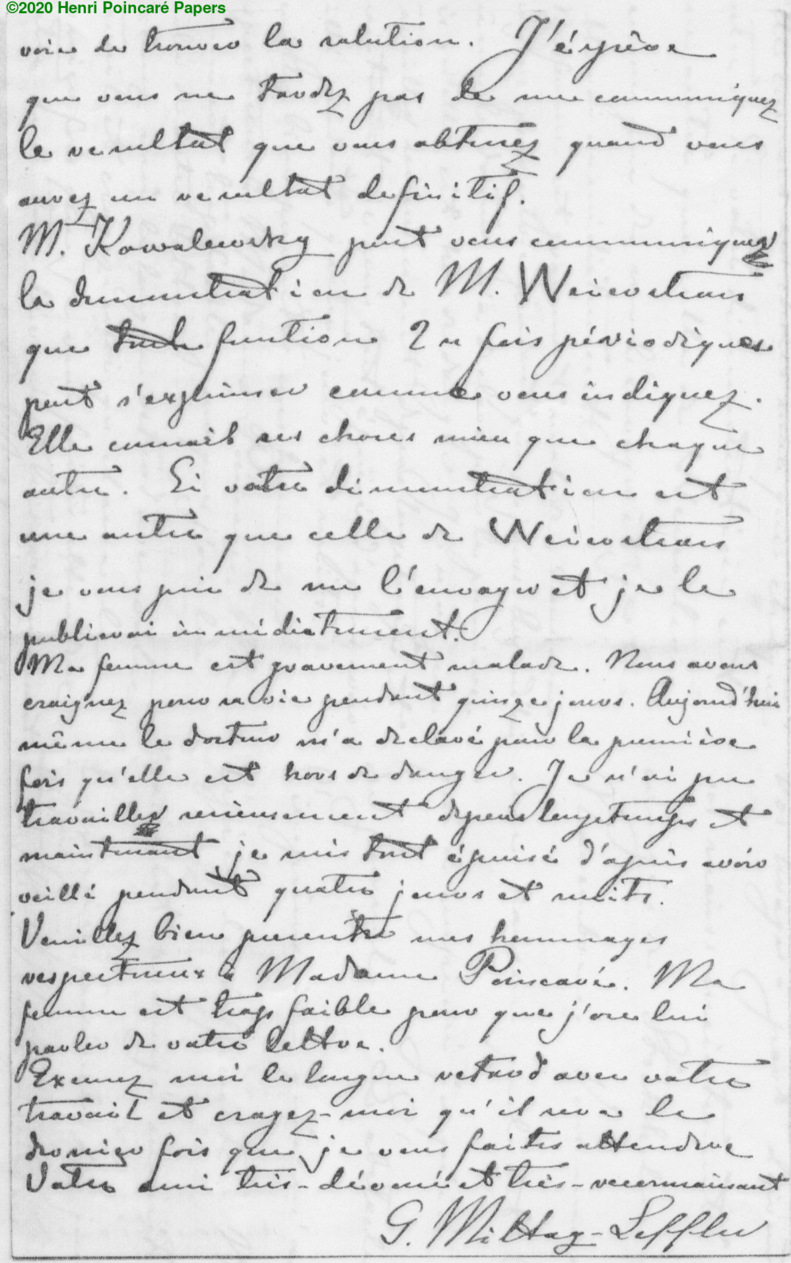 ©2020 Henri Poincaré Papers
voie de trouver la solution. J'éspère
que vous ne tardez pas de me communiquez
le resultat que vous obtenez quand vous
aurez un resultat definitif.
M. Kowalewsky peut vous communiquez
la demonstration de M. Weierstrass
que toute fonction 2n fois périodiques
peut s'exprimer comme vous indiquez.
Elle connait ses choses mieu que chaque
autre. Si votre dimonstration est
une autre que celle de Weierstrass
je vous prie de me l'envoyer et je le
publierai immidiatement.
Ma femme est gravement malade. Nous avons
craignez pour sa vie pendant quinze jours. Aujourd'hui
même le docteur m'a declaré pour la première
fois qu'elle est hors de danger. Je n'ai pu
travailler serieusement depuis longtemps et
maintenant je suis tout épuisé d'apris avoir
veillé pendant quatre jours et nuits.
Veuillez bien presenter mes hommages
respectueux à Madame Poincaré. Ma
femme est trop faible pour que j'ose lui
parler de votre lettre.
Excusez moi le longue retard avec votre
travail et crayez-moi qu'il sera le
dernier fois que je vous faites attendre
Votre ami très-dévoué et très-reconnaissant
G. Mittag-Leffler